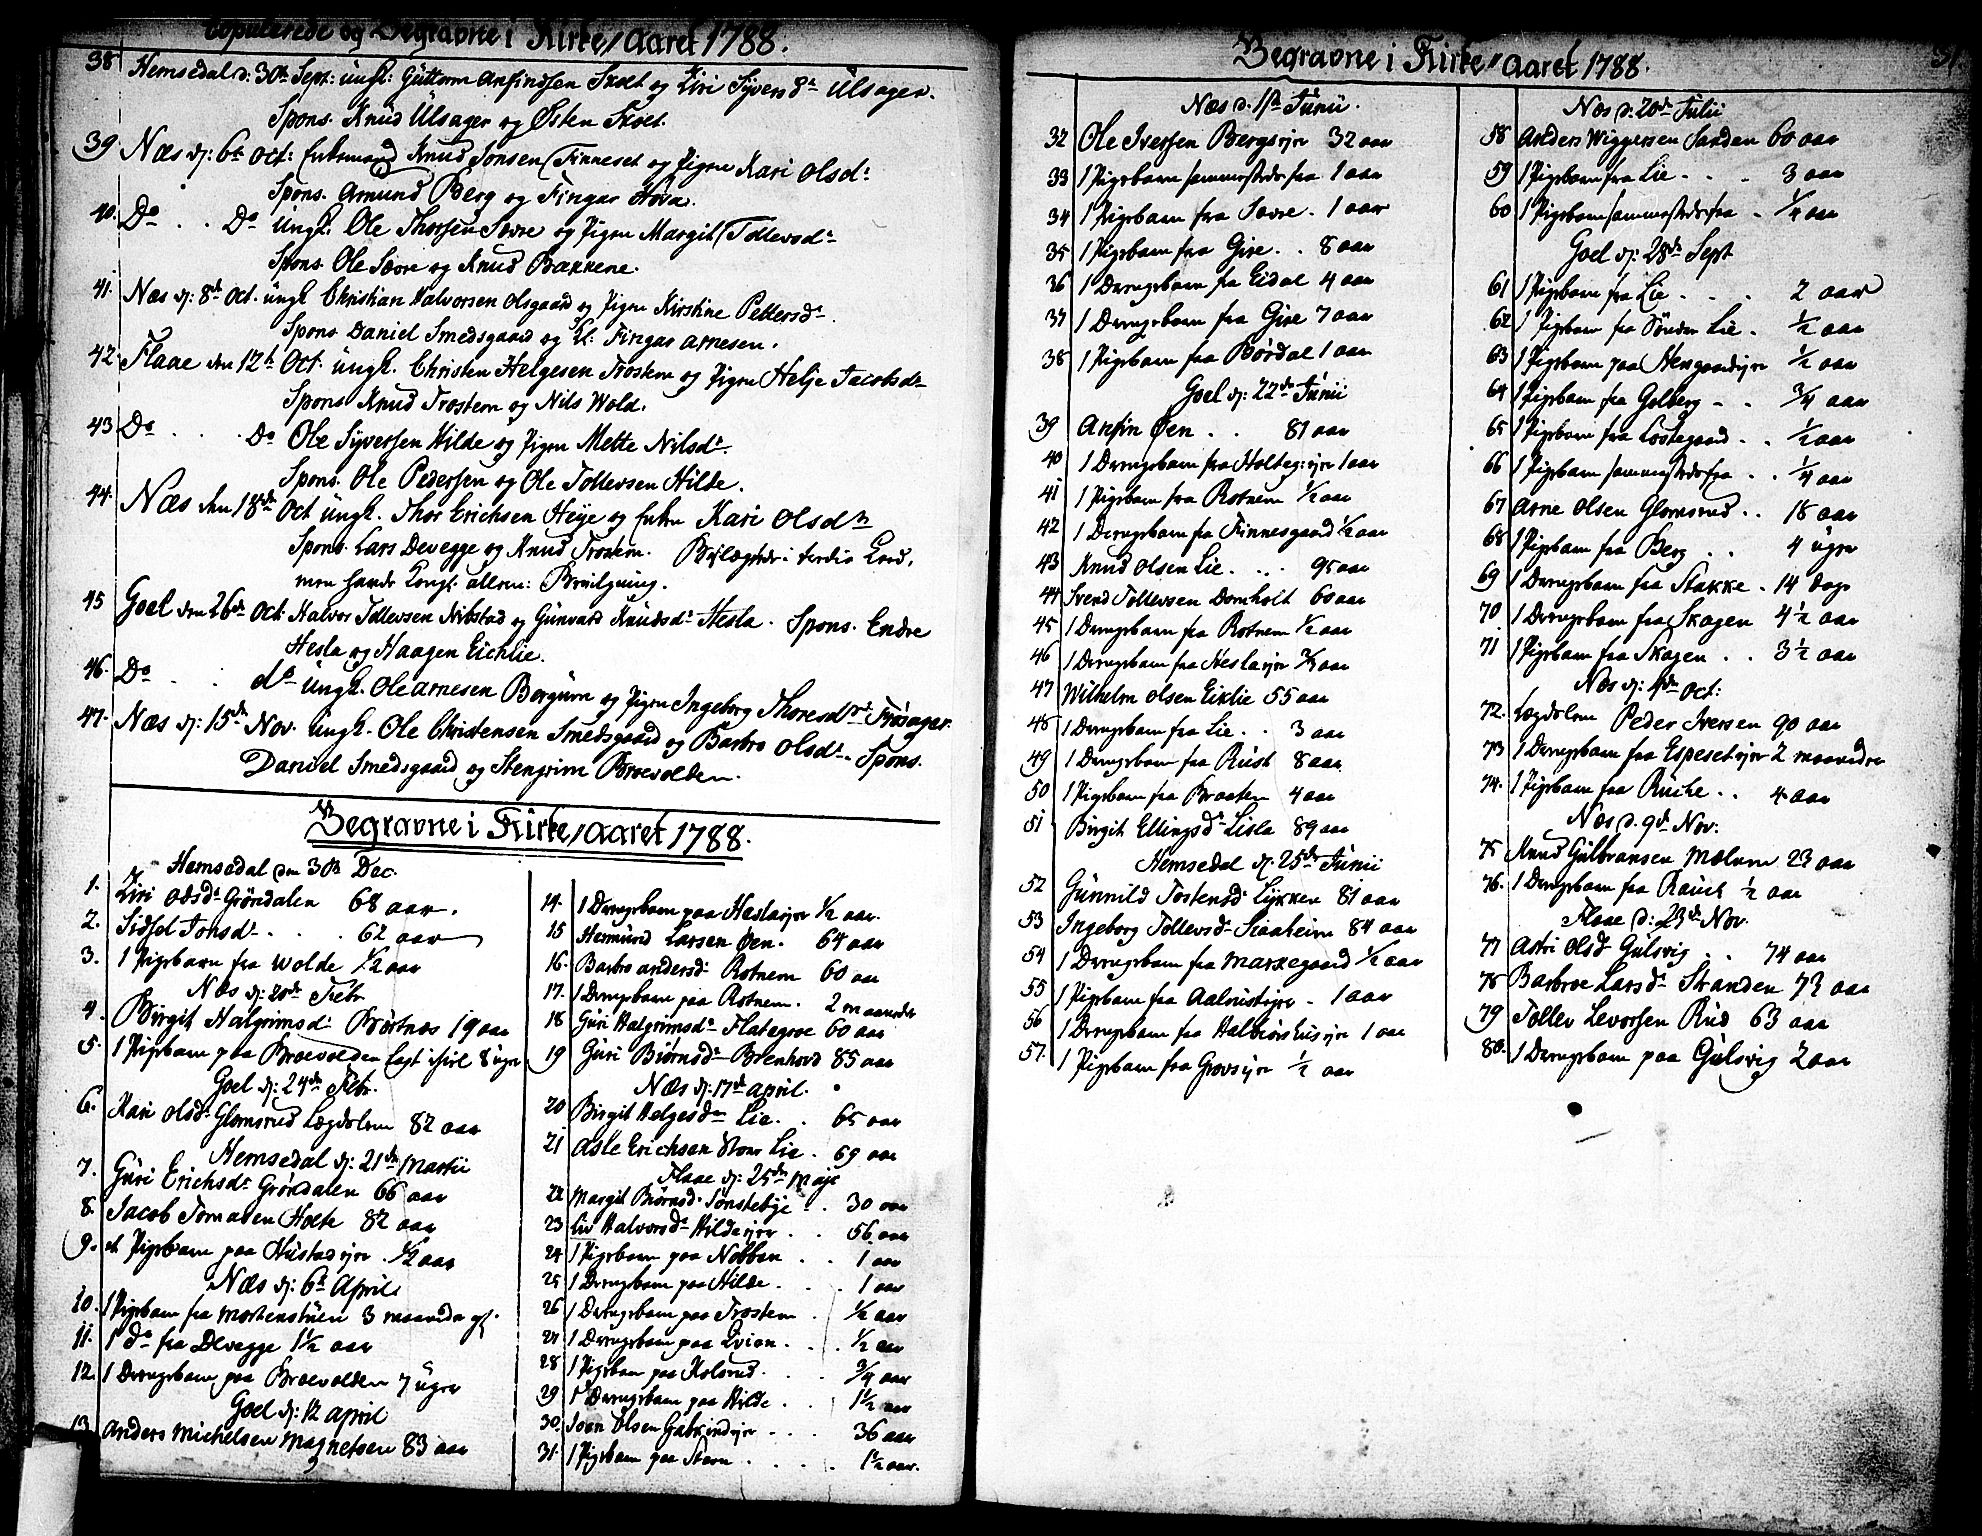 Copulerede og Begravne i Kirke Aaret 1788.
38 Hemsedal d: 30te Sept: ungk: Guttorm Anfindsen Skoet og Kiri Syversda Ulsager.
Spons. Knud Ulsager og Østen Skoet.
39 Næs dj: 6te Oct: Enkemand Knud Jonsen Finneset og Pigen Kari Olsda
Spons. Amund Berg og Fingar Hova.
40. Do . . Do ungk. Ole Thorsen Sævre og Pigen Margit Tollevsda
Spons. Ole Sævre og Knud Bakkene.
41. Næs dj: 8de Oct. ungk Christian Halvorsen Olsgaard og Pigen Kirstine Pettersda.
Spons Daniel Smedsgaard og Kl: Fingar Arnesen.
42 Flaae den 12te Oct. ungk. Christen Helgesen Trostem og Pigen Helje Jacobsda
Spons Knud Trostem og Nils Wold.
43 Do . . . Do Ole Syversen Hilde og Pigen Mette Nilsda.
Spons. Ole Pedersen og Ole Tollevsen Hilde.
44. Næs den 18de Oct ungk. Thor Erichsen Heije og Enken Kari Olsdr
Spons. Lars Devegge og Knud Trostem. Besvægrede i tredie Leed,
men havde Kongl. allern: Bevilgning.
45 Goel den 26de Oct. Halvor Tollevsen Nibstad og Gunvald Knudsda Hesla. Spons. Endre
Hesla og Haagen Eichlie.
46. Do . . do ungk. Ole Arnesen Bergum og Pigen Ingeborg Thoresdr
47. Næs dj: 15de Nov. ungk. Ole Christensen Smedsgaard og Barbro Olsda. Spons.
Daniel Smedsgaard og Stengrim Broevolden.
Begravne i Kirke Aaret 1788.
Hemsedal den 30te Dec.
1. Kiri Odsda Grøndalen 68 aar.
2. Sidsel Jonsda . . . 62 aar
3. 1 Pigebarn fra Wolde ½ aar
Næs dj: 20de Febr.
4. Birgit Halgrimsda Børtnæs 19 aar
5. 1 Pigebarn paa Broevolden 8 uger
Goel dj: 24de Febr.
6. Kari Olsda Glomsrud Lægdslem 82 aar
Hemsedal dj: 21de Martii
7. Guri Erichsda Grøndalen 66 aar
8. Jacob Tomasen Holte 82 aar
9. et Pigebarn paa Hustadejer ½ aar
Næs dj: 6te April
10. 1 Pigebarn fra Mortenstuen 3 maaneder gl.
11. 1 do fra Devegge 1½ aar
12. 1 Drengebarn paa Broevolden 7 uger
Goel dj: 12 april
13. Anders Michelsen Magnetsen 83 aar
14. 1 Drengebarn paa Heslaejer ½ aar.
15 Hermund Larsen Øen. 64 aar
16. Barbro Andersda Rotnem 60 aar
17. 1 Drengebarn paa Rotnem. 2 maaneder
18 Guri Halgrimsda Flategroe 60 aar
19 Guri Biørnsda Brenhovd 85 aar
Næs dj: 17de april.
20 Birgit Helgesda Lie. . 65 aar
21 Asle Erichsen Lie . 69 aar
Flaae dj: 25de Maje
22 Margit Biørnsd. Sønstebye . . 30 aar
23 Liv Halvorsda Hildeejer . . 56 aar
24 1 Pigebarn paa Nobben . . 1 aar
25 1 Drengebarn paa Hilde . . . 1 aar
26 1 Drengebarn paa Trostem . ½ aar
27 1 Drengebarn paa Kvien . . . ½ aar
28 1 Pigebarn paa Kolsrud. . . . ¾ aar
29 1 Drengebarn paa Hilde . . . 1½ aar
30. Iven Olsen Gubrindejer . . . 36 aar
31. 1 Pigebarn paa Steen . . . . . 1½ aar.
Begravne i Kirke Aaret 1788.
Næs d. 1ste Junii.
32 Ole Iversen Bergsejer 32 aar
33 1 Pigebarn sammestedsfra 1 aar
34 1 Pigebarn fra Sævre . 1 aar
35 1 Pigebarn fra Gire . . 8 aar
36 1 Drengebarn fra Eidal 4 aar
37 1 Drengebarn fra Gire 7 aar
38 1 Pigebarn fra Børdal 1 aar
Goel dj: 22de Junii
39 Anfin Øen . . 81 aar
40 1 Drengebarn fra Holtegrejer 1 aar
41 1 Pigebarn fra Rotnem ½ aar
42 1 Drengebarn fra Finnesgaard ½ aar
43 Knud Olsen Lie. . . . 95 aar
44 Svend Tollevsen Domholt 60 aar
45 1 Drengebarn fra Rotnem ½ aar
46 1 Drengebarn fra Heslaejer ¾ aar
47 Wilhelm Olsen Eiklie 55 aar
48 1 Drengebarn fra Lie . . 3 aar
49 1 Drengebarn fra Rust 8 aar
50 1 Pigebarn fra Braaten 4 aar
51 Birgit Ellingsda Lisla 89 aar
Hemsedal dj. 25de Junii
52 Gunnild Tostensd Lykken 81 aar
53 Ingeborg Tollevsda Staaheim 84 aar
54 1 Drengebarn fra Markegaard ½ aar
55 1 Pigebarn fra Aalrustejer . 1 aar
56 1 Drengebarn fra Halvorshusejer 1 aar
57. 1 Pigebarn fra Grovsejer ½ aar
Næs d: 20de Julii
58 Anders Wiggersen Sanden 60 aar
59 1 Pigebarn fra Lie . . . 3 aar
60 1 Pigebarn sammestedsfra . ¼ aar
Goel dj: 28de Sept
61 1 Pigebarn fra Lie . . . 2 aar
62 1 Pigebarn fra Sønder Lie . ½ aar
63 1 Pigebarn paa Hengaardejer ½ aar
64 1 Pigebarn fra Golberg . . ¾ aar
65 1 Pigebarn fra Lostegaard . . ½ aar
66 1 Pigebarn sammestedsfra . . ¼ aar
67 Arne Olsen Glomsrud . . 18 aar
68 1 Pigebarn fra Berg . . 4 uger
69 1 Drengebarn fra Stakke . 14 dage
70 1 Drengebarn fra Skagen 4½ aar
71 1 Pigebarn fra Skagen . . 3½ aar
Næs dj: 4de Oct:
72. Lægdslem Peder Iversen 90 aar
73 1 Drengebarn fra Espesetejer 2 maaneder
74. 1 Pigebarn fra Ruche . . 4 aar
Næs d. 9de Nov:
75 Knud Gulbransen Mælum 23 aar
76. 1 Drengebarn fra Rauch ½ aar
Flaae d: 23de Nov.
77 Astri Olsd Gulsvig . . 74 aar
78 Barbroe Larsda Stranden 73 aar
79 Tollev Levorsen Rud 63 aar
80. 1 Drengebarn paa Gulsvig 2 aar